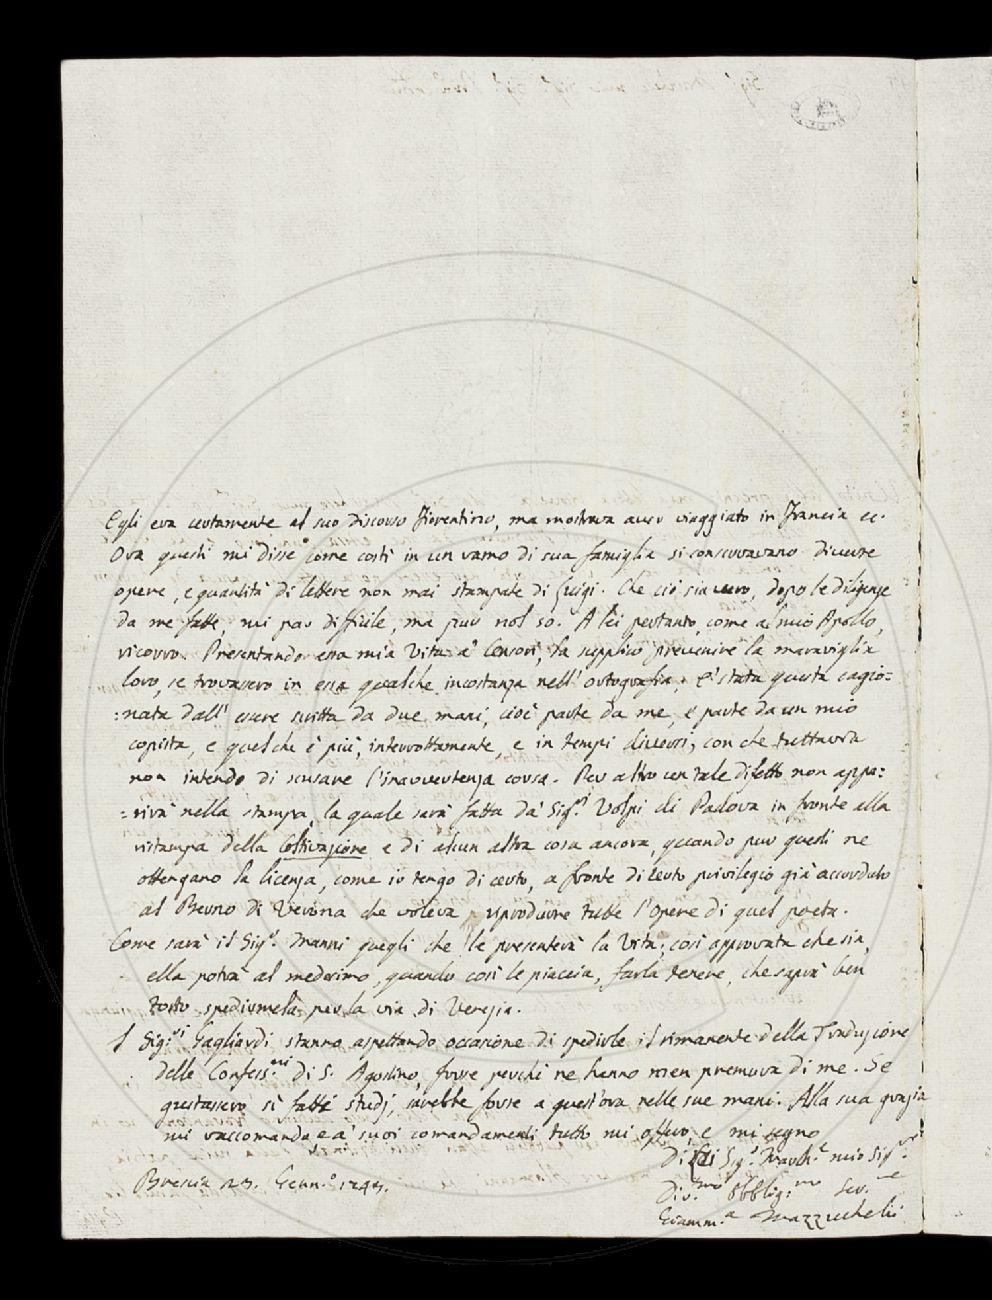 Egli era certamente al suo discorso Fiorentino, ma mostrava aver viaggiato in Francia ec.
Ora questi mi disse come costì in un ramo di sua famiglia si conservavano diverse
opere, e quantità di lettere non mai stampate di Luigi. Che ciò sia vero, dopo le diligenze
da me fatte, mi par difficile, ma pur nol so. A lei pertanto, come al mio Apollo,
ricorro. Presentando essa mia Vita a' Censori, la supplico prevenire la maraviglia
loro, se trovassero in essa qualche incostanza nell' ortografia. E' stata questa cagio=
=nata dall' essere scritta da due mani, cioè parte da me, e parte da un mio
copista, e quel che è più, interrottamente, e in tempi diversi, con che tuttavia
non intendo di scusare l'inavvertenza corsa. Per altro un tale difetto non appa=
=rirà nella stampa, la quale sarà fatta da' Sig.ri Volpi di Padova in fronte alla
ristampa della Coltivazione e di alcun altra cosa ancora, quando pur questi ne
ottengano la licenza, come io tengo di certo, a fronte di certo privilegio già accordato
al Berno di Verona che voleva riprodurre tutte l'Opere di quel poeta.
Come sarà il Sig.r Manni quegli che le presenterà la Vita, così approvata che sia,
ella potrà al medesimo, quando così le piaccia, farla tenere, che saprà ben
tosto spedirmela per la via di Venezia.
I Sigi.ri Gagliardi stanno aspettando occasione di spedirle il rimanente della Traduzione
delle Confess.oni di S. Agostino, forse perchè ne hanno men premura di me. Se
gustassero sì fatti studj, sarebbe forse a quest'ora nelle sue mani. Alla sua grazia
mi raccomando e a' suoi comandamenti tutto mi offero, e mi segno
Di Lei Sig.r March.e mio Sig.r
Brescia 23. Genn.o 1745.
Div.mo Obblig.mo Ser.re
Giamm.a Mazzuchelli